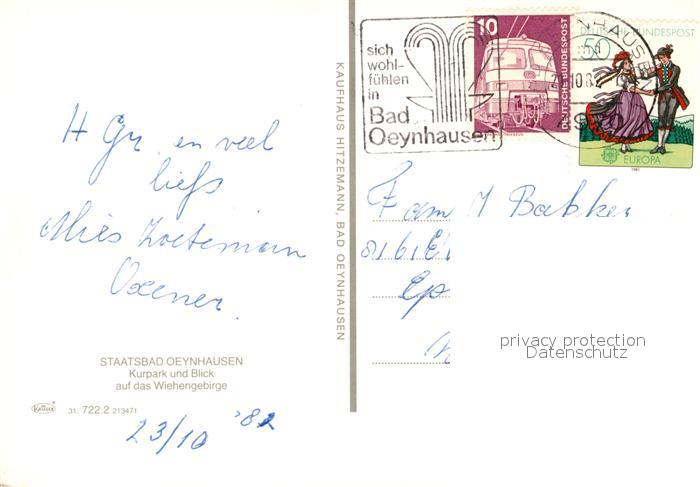 H Gr. en veel
liefs
Mies
STAATSBAD OEYNHAUSEN
Kurpark und Blick
auf das Wiehengebirge
Krüger
31. 722.2 213471
23/10 '82
KAUFHAUS HITZEMANN, BAD OEYNHAUSEN
sich
wohl-
fühlen
in
Bad
Oeynhausen
10
DEUTSCHE BUNDESPOST
DEUTSCHE BUNDESPOST
50
EUROPA
1981
Fam J Bakker
8161
Ep
privacy protection
Datenschutz